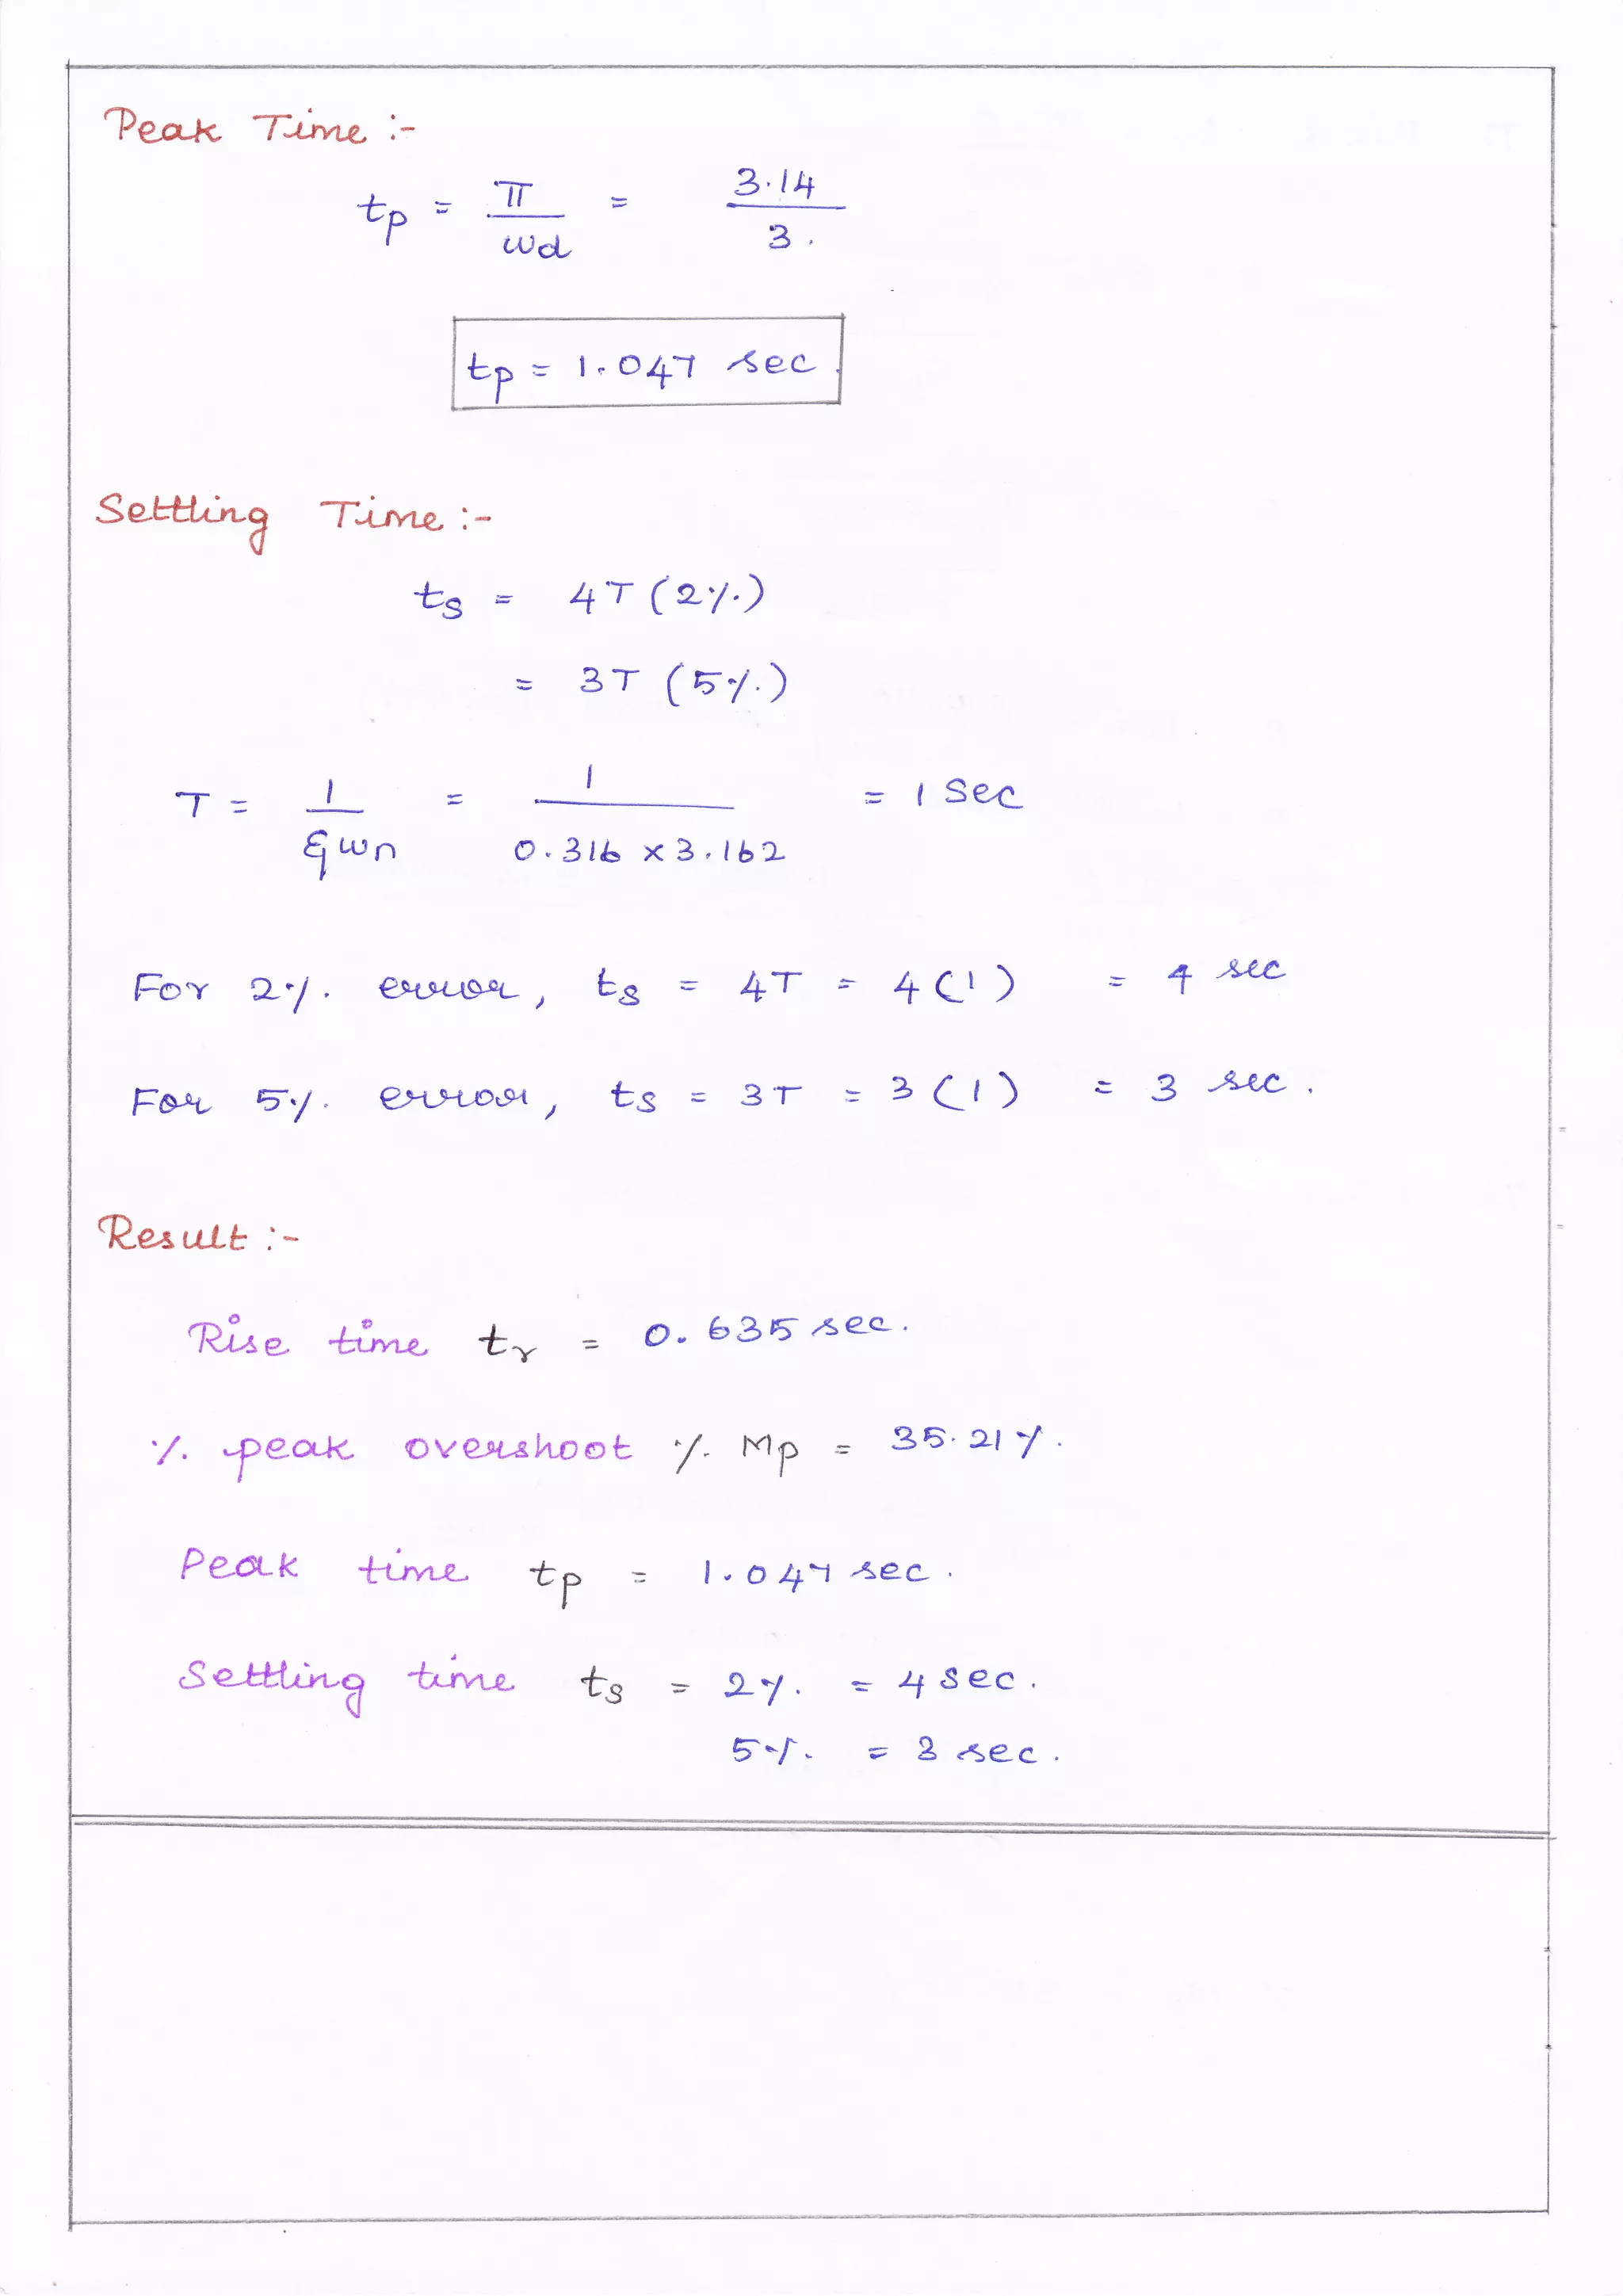 Peak Time :-
tp = π / ωd = 3.14 / 3.
tp = 1.047 sec.
Settling Time :-
ts = 4T (2%)
= 3T (5%)
T = 1 / ξωn = 1 / 0.316 × 3.162 = 1 Sec
For 2% error, ts = 4T = 4(1) = 4 sec
For 5% error, ts = 3T = 3(1) = 3 sec.
Result :-
Rise time tr = 0.635 sec.
% peak overshoot % Mp = 35.21%.
Peak time tp = 1.047 sec.
Settling time ts = 2% = 4 Sec.
5% = 3 sec.